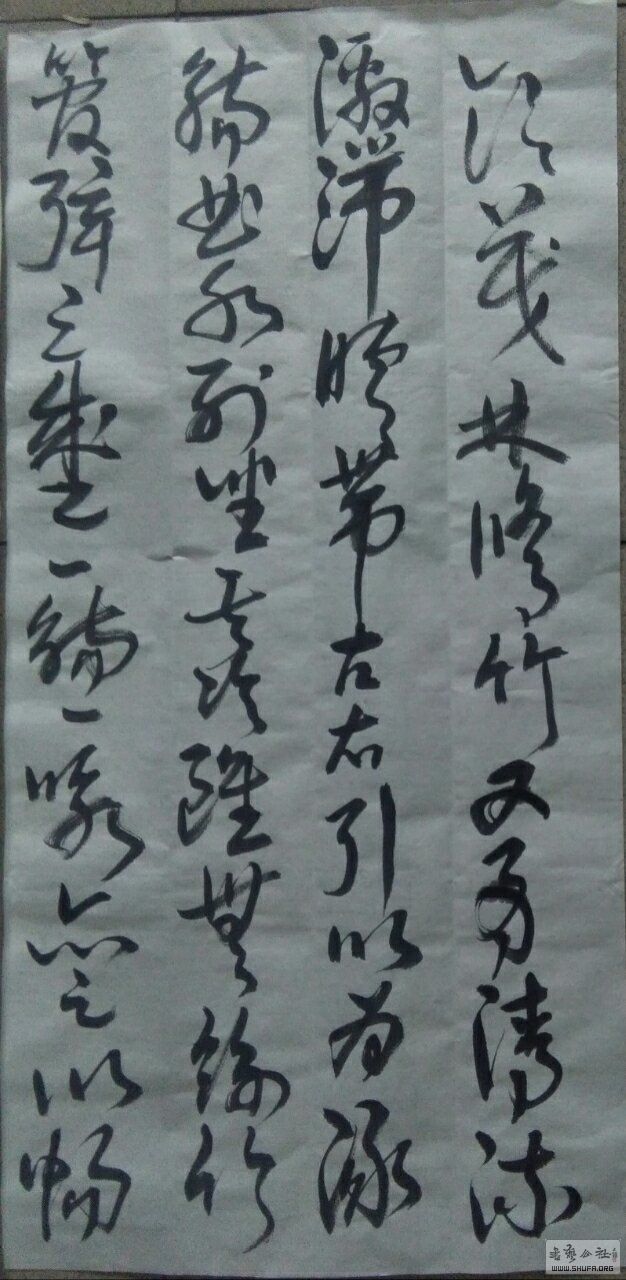 領茂林修竹又有清流
激湍暎帶左右引以為流
觴曲水列坐其次雖無絲竹
管弦之盛一觴一詠亦足以暢
书艺公社
WWW.SHUFA.ORG